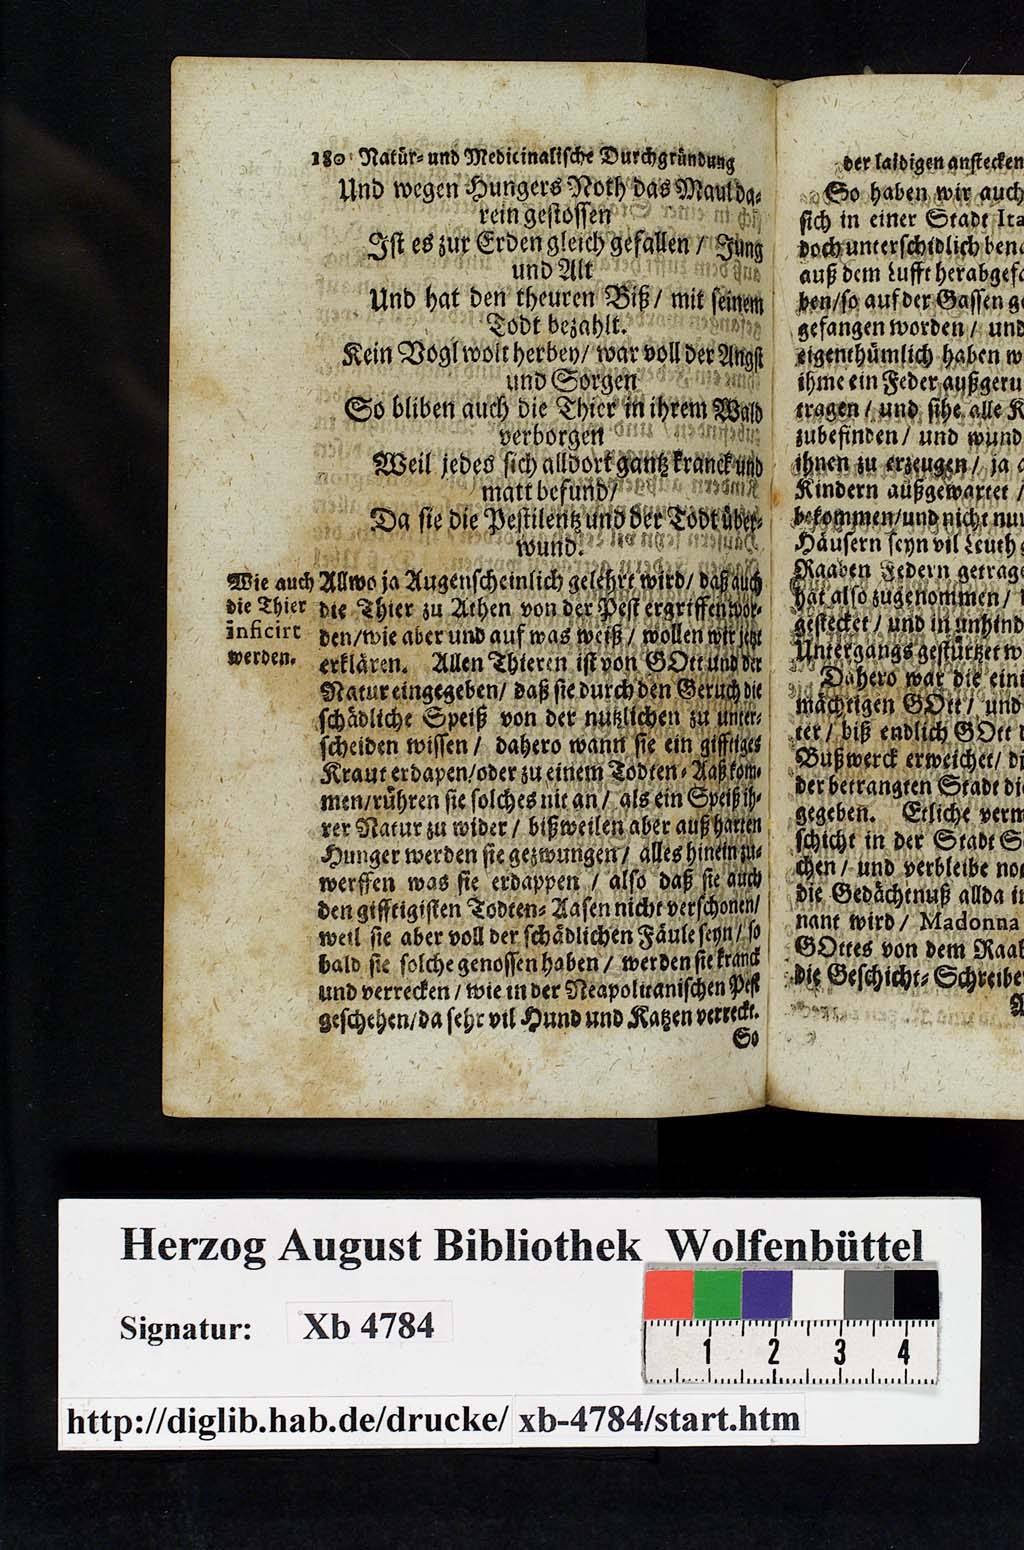 180 Natur- und Medicinalische Durchgründung
Und wegen Hungers Noth das Maul da-
rein gestossen
Ist es zur Erden gleich gefallen / Jung
und Alt
Und hat den theuren Biß / mit seinem
Todt bezahlt.
Kein Vogl wolt herbey / war voll der Angst
und Sorgen
So bliben auch die Thier in ihrem Wald
verborgen
Weil jedes sich alldort gantz kranck und
matt befund /
Da sie die Pestilentz und der Todt über-
wund.
Wie auch
die Thier
inficirt
werden.
Allwo ja Augenscheinlich gelehrt wird / daß auch
die Thier zu Athen von der Pest ergriffen wor-
den / wie aber und auf was weiß / wollen wir jetzt
erklären. Allen Thieren ist von GOtt und der
Natur eingegeben / daß sie durch den Geruch die
schädliche Speiß von der nutzlichen zu unter-
scheiden wissen / dahero wann sie ein gifftiges
Kraut erdapen / oder zu einem Todten-Aaß kom-
men / rühren sie solches nit an / als ein Speiß ih-
rer Natur zu wider / bißweilen aber auß harten
Hunger werden sie gezwungen / alles hinein zu-
werffen was sie erdappen / also daß sie auch
den gifftigisten Todten-Aasen nicht verschonen /
weil sie aber voll der schädlichen Fäule seyn / so
bald sie solche genossen haben / werden sie kranck
und verrecken / wie in der Neapolitanischen Pest
geschehen / da sehr vil Hund und Katzen verreckt.
So
der laidigen anstecken
So haben wir auch
sich in einer Stadt Ita
doch unterschidlich bena
auß dem Lufft herabgefa
ben / so auf der Gassen ge
gefangen worden / und
eigenthümlich haben w
ihme ein Feder außgeru
tragen / und sihe alle K
zubefinden / und wund
ihnen zu erzeugen / ja a
Kindern außgewartet /
bekommen / und nicht nur
Häusern seyn vil Leuth g
Raaben Federn getrage
hat also zugenommen /
gestecket / und in unhind
Untergangs gestürtzet w
Dahero war die eini
mächtigen GOtt / und
ter / biß endlich GOtt
Bußwerck erweichet / di
der betrangten Stadt die
gegeben. Etliche verm
schicht in der Stadt S
chen / und verbleibe noc
die Gedächtnuß allda in
nant wird / Madonna
GOttes von dem Raab
die Geschicht-Schreiber
A
Herzog August Bibliothek Wolfenbüttel
Signatur: Xb 4784
1 2 3 4
http://diglib.hab.de/drucke/ xb-4784/start.htm